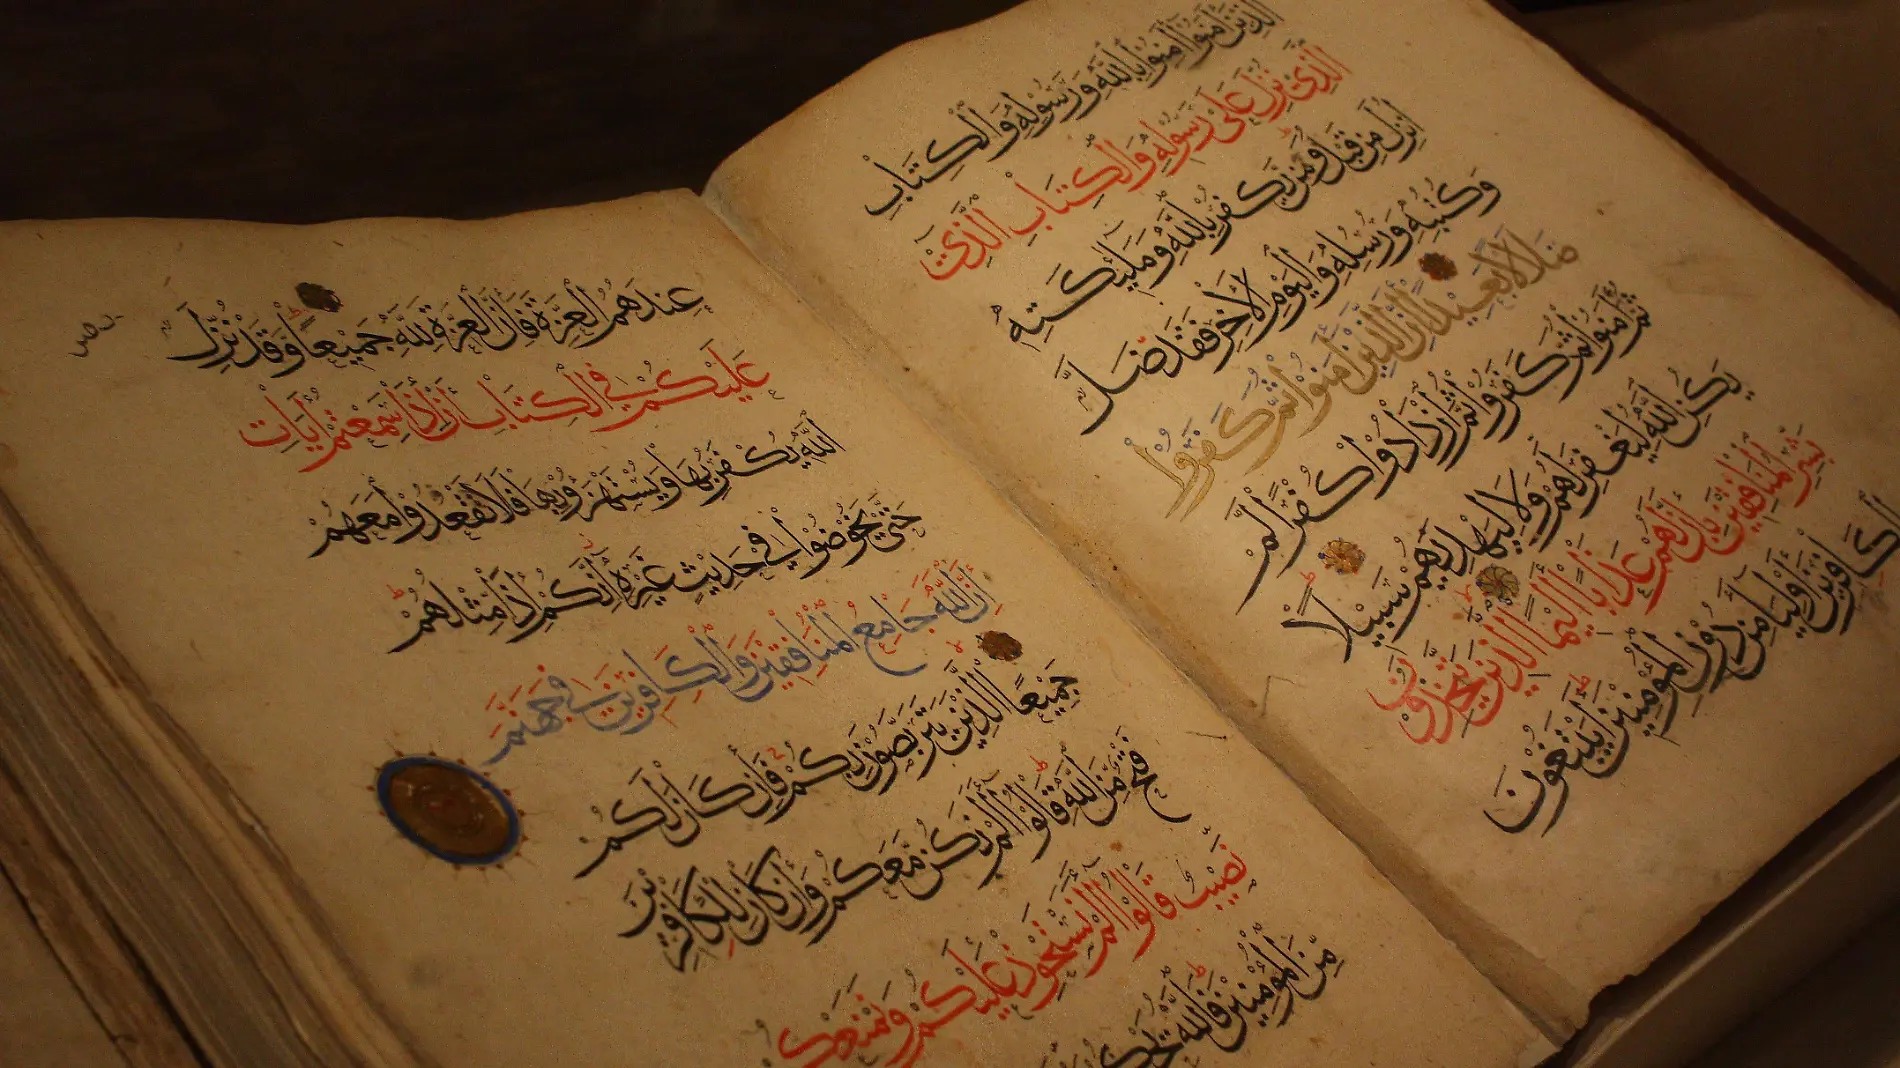 الَّذِينَ آمَنُوا آمِنُوا بِاللَّهِ وَرَسُولِهِ وَالْكِتَابِ
الَّذِي نَزَّلَ عَلَى رَسُولِهِ وَالْكِتَابِ الَّذِي
أَنْزَلَ مِنْ قَبْلُ وَمَنْ يَكْفُرْ بِاللَّهِ وَمَلَٰئِكَتِهِ
وَكُتُبِهِ وَرُسُلِهِ وَالْيَوْمِ الْآخِرِ فَقَدْ ضَلَّ
ضَلَالًا بَعِيدًا إِنَّ الَّذِينَ آمَنُوا ثُمَّ كَفَرُوا
ثُمَّ آمَنُوا ثُمَّ كَفَرُوا ثُمَّ ازْدَادُوا كُفْرًا لَمْ
يَكُنِ اللَّهُ لِيَغْفِرَ لَهُمْ وَلَا لِيَهْدِيَهُمْ سَبِيلًا
بَشِّرِ الْمُنَافِقِينَ بِأَنَّ لَهُمْ عَذَابًا أَلِيمًا الَّذِينَ يَتَّخِذُونَ
الْكَافِرِينَ أَوْلِيَاءَ مِنْ دُونِ الْمُؤْمِنِينَ أَيَبْتَغُونَ
عِنْدَهُمُ الْعِزَّةَ فَإِنَّ الْعِزَّةَ لِلَّهِ جَمِيعًا وَقَدْ نُزِّلَ
عَلَيْكُمْ فِي الْكِتَابِ أَنْ إِذَا سَمِعْتُمْ آيَاتِ
اللَّهِ يُكْفَرُ بِهَا وَيُسْتَهْزَؤُ بِهَا فَلَا تَقْعُدُوا مَعَهُمْ
حَتَّى يَخُوضُوا فِي حَدِيثٍ غَيْرِهِ إِنَّكُمْ إِذًا مِثْلُهُمْ
إِنَّ اللَّهَ جَامِعُ الْمُنَافِقِينَ وَالْكَافِرِينَ فِي جَهَنَّمَ
جَمِيعًا الَّذِينَ يَتَرَبَّصُونَ بِكُمْ فَإِنْ كَانَ لَكُمْ
فَتْحٌ مِنَ اللَّهِ قَالُوا أَلَمْ نَكُنْ مَعَكُمْ وَإِنْ كَانَ لِلْكَافِرِينَ
نَصِيبٌ قَالُوا أَلَمْ نَسْتَحْوِذْ عَلَيْكُمْ وَنَمْنَعْكُمْ
مِنَ الْمُؤْمِنِينَ فَاللَّهُ يَحْكُمُ